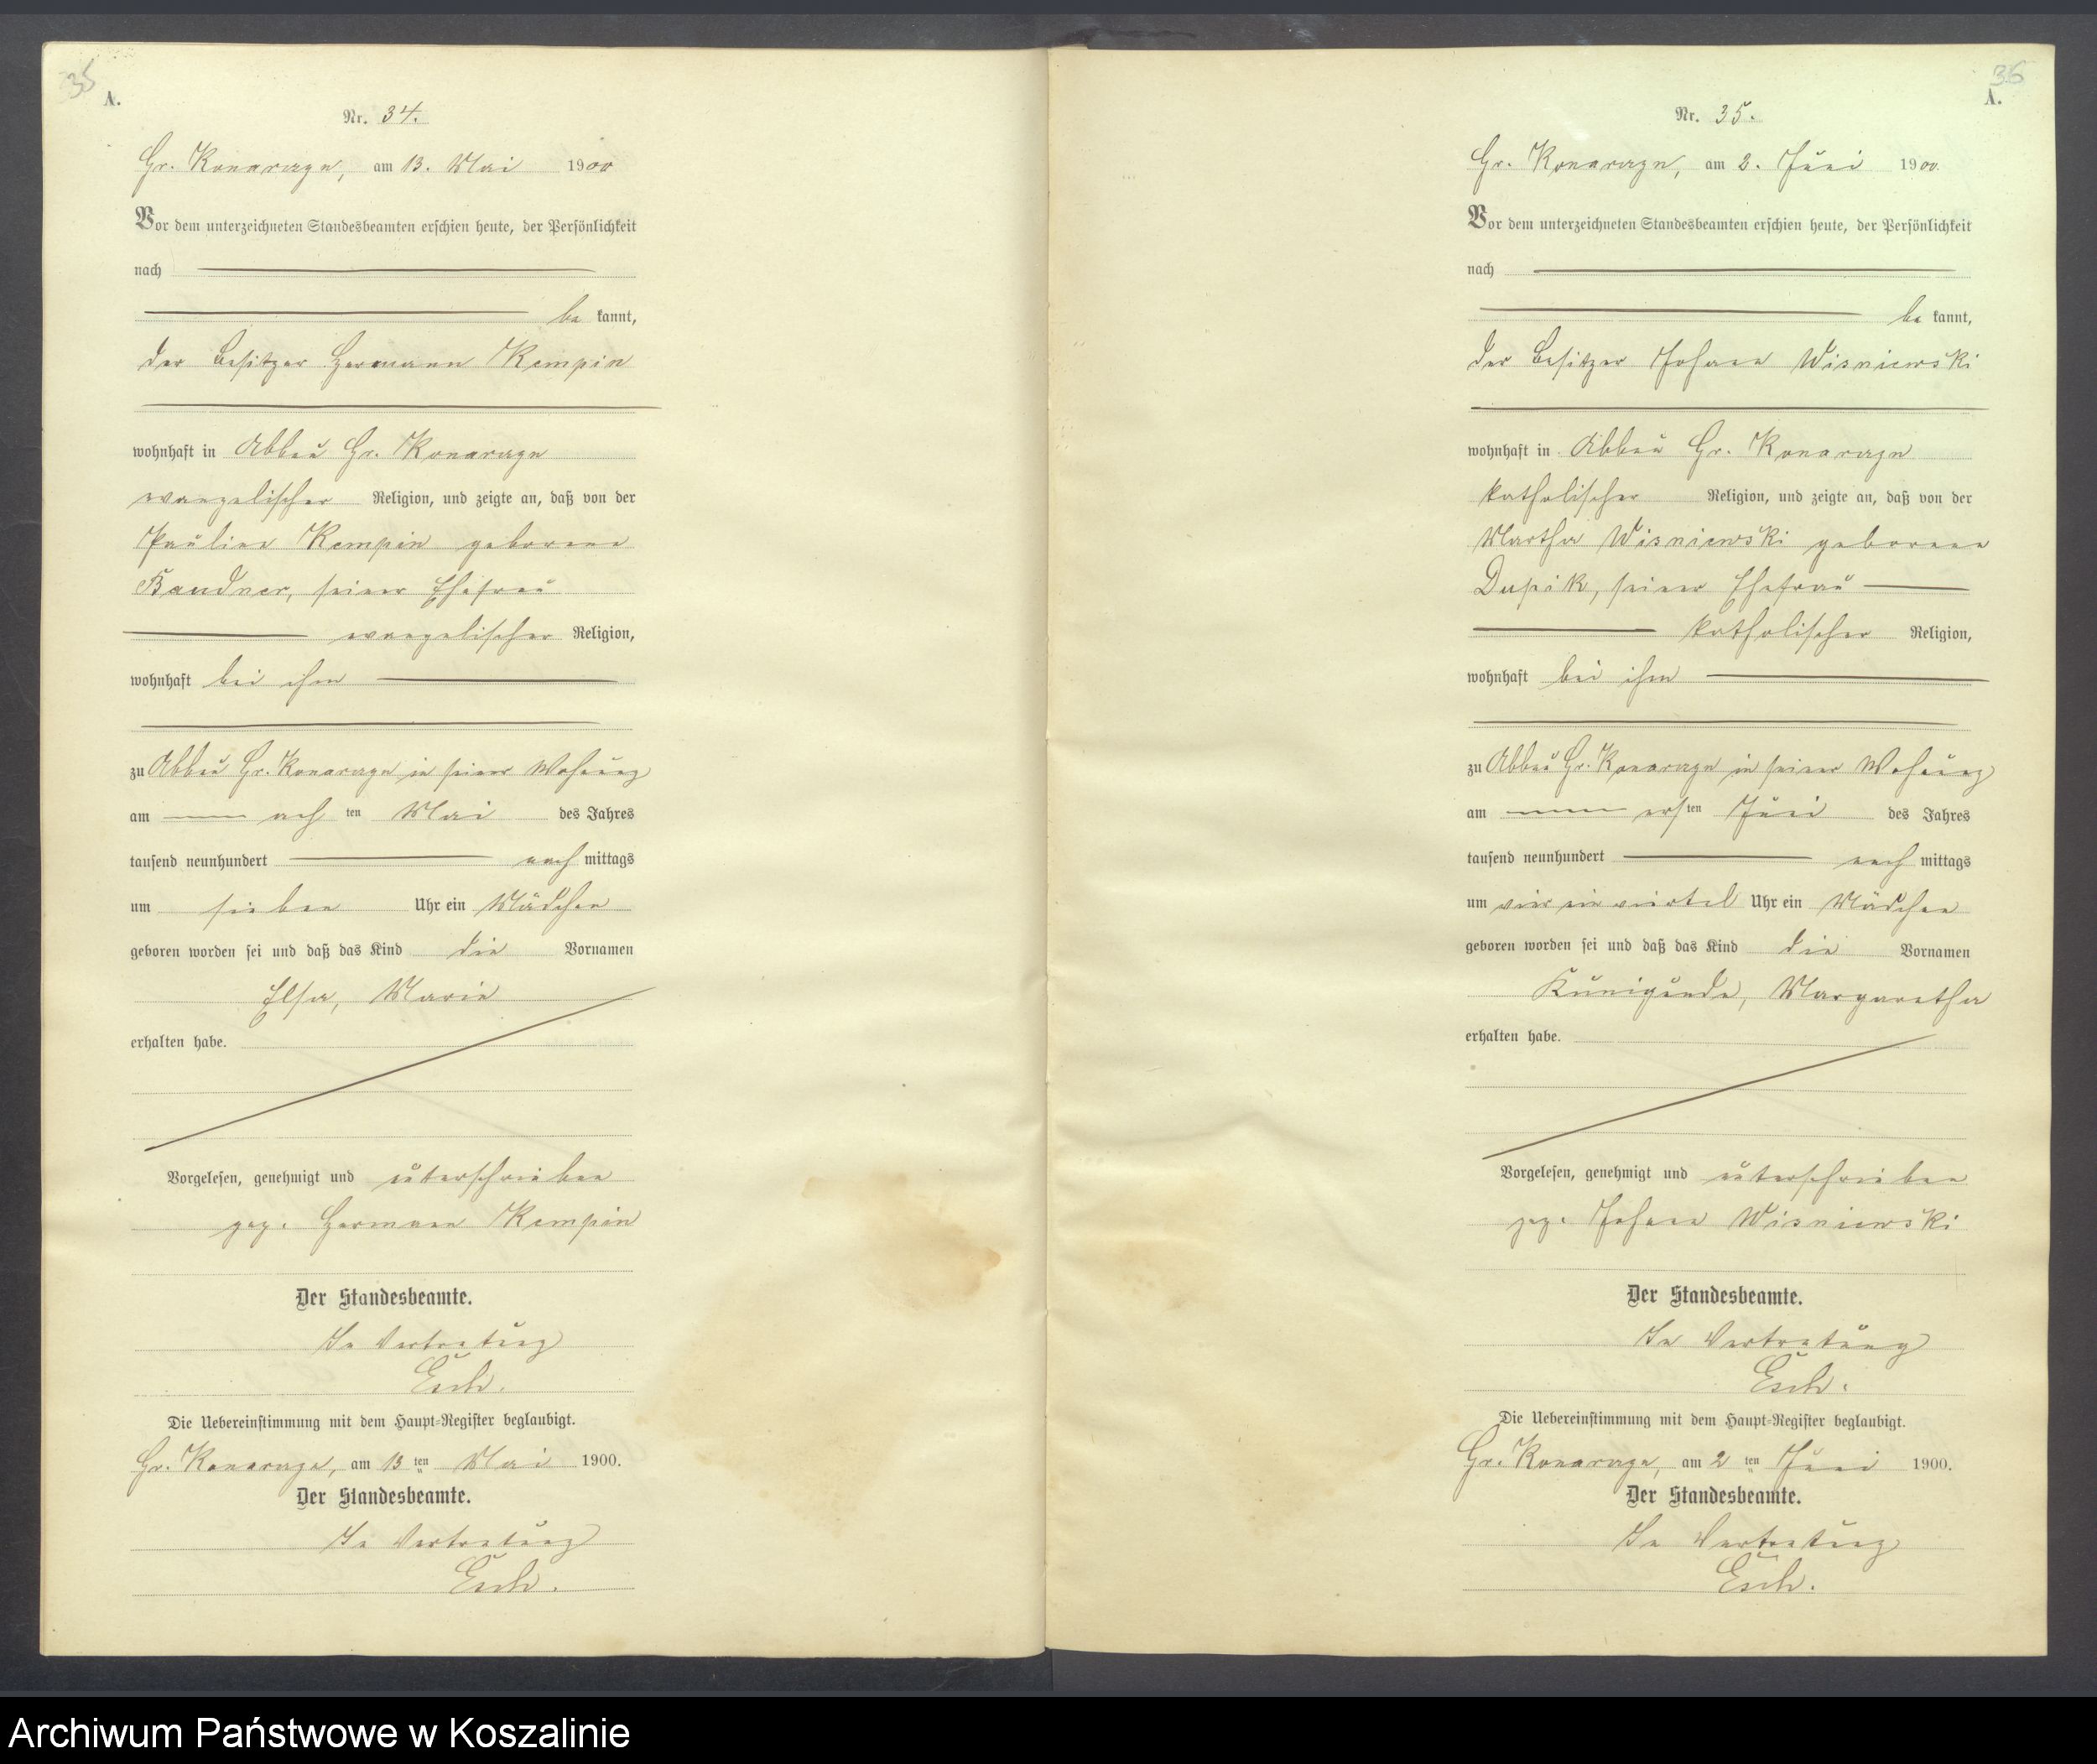 35
A.
Nr. 34.
Gr. Konarczyn, am 13. Mai 1900
Vor dem unterzeichneten Standesbeamten erschien heute, der Persönlichkeit
nach
be kannt,
der Besitzer Hermann Kempin
wohnhaft in Abbau Gr. Konarczyn
evangelischer Religion, und zeigte an, daß von der
Pauline Kempin geborene
Bandner, seiner Ehefrau
evangelischer Religion,
wohnhaft bei ihm
zu Abbau Gr. Konarczyn in seiner Wohnung
am ach ten Mai des Jahres
tausend neunhundert nach mittags
um sieben Uhr ein Mädchen
geboren worden sei und daß das Kind die Vornamen
Elsa, Marie
erhalten habe.
Vorgelesen, genehmigt und unterschrieben
gez. Hermann Kempin
Der Standesbeamte.
In Vertretung
Esch.
Die Uebereinstimmung mit dem Haupt-Register beglaubigt.
Gr. Konarczyn, am 13 ten Mai 1900.
Der Standesbeamte.
In Vertretung
Esch.
36
A.
Nr. 35.
Gr. Konarczyn, am 2. Juni 1900.
Vor dem unterzeichneten Standesbeamten erschien heute, der Persönlichkeit
nach
be kannt,
der Besitzer Johann Wisniewski
wohnhaft in Abbau Gr. Konarczyn
katholischer Religion, und zeigte an, daß von der
Martha Wisniewski geborene
Dupik, seiner Ehefrau
katholischer Religion,
wohnhaft bei ihm
zu Abbau Gr. Konarczyn in seiner Wohnung
am ersten Juni des Jahres
tausend neunhundert nach mittags
um vier ein viertel Uhr ein Mädchen
geboren worden sei und daß das Kind die Vornamen
Kunigunde, Margaretha
erhalten habe.
Vorgelesen, genehmigt und unterschrieben
gez. Johann Wisniewski
Der Standesbeamte.
In Vertretung
Esch.
Die Uebereinstimmung mit dem Haupt-Register beglaubigt.
Gr. Konarczyn, am 2 ten Juni 1900.
Der Standesbeamte.
In Vertretung
Esch.
Archiwum Państwowe w Koszalinie